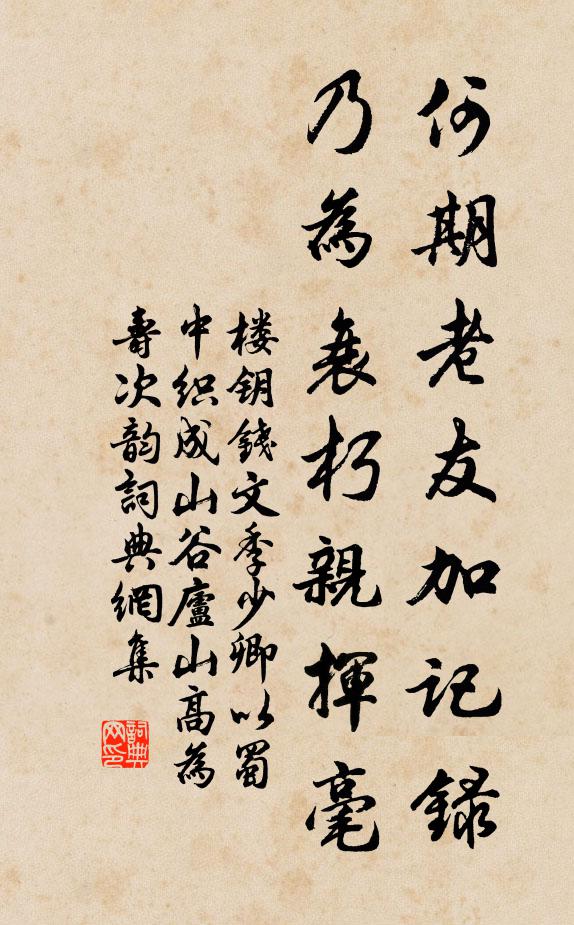 何期老友加记錄
乃為衰朽親揮毫
楼钥錢文季少卿以蜀
中织成山谷廬山高為
壽次韵詞典網集
詞典网印